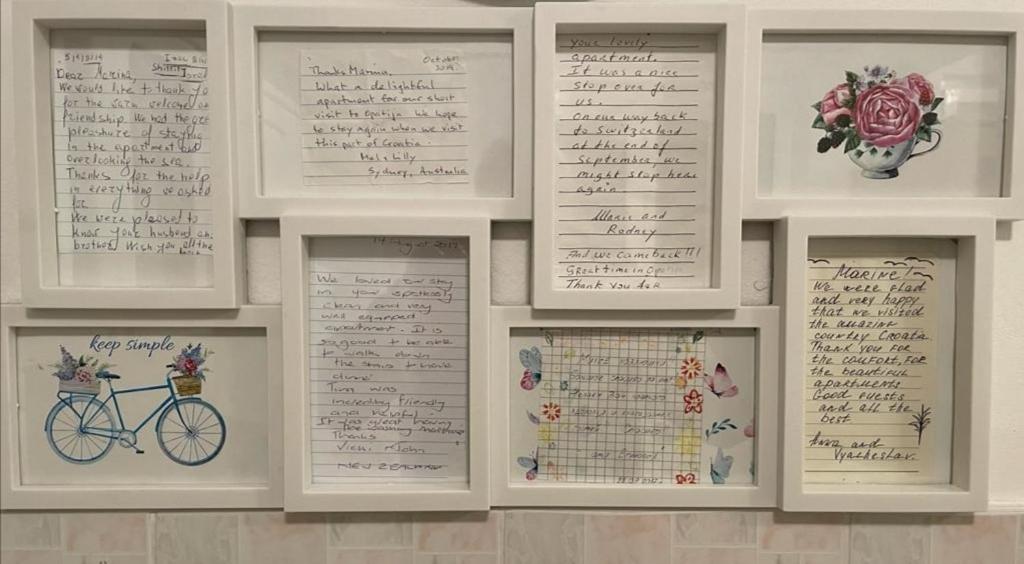 5/10/19
Dear Marina,
We would like to thank yo
for the warm welcome an
friendship. We had the gre
pleashure of staying
in the apartment and
overlooking the sea.
Thanks for the help
in everything we asked
for
We were pleased to
know your husband an
brother. Wish you all the
October
2019.
Thanks Marina.
What a delightful
apartment for our short
visit to Opatija. We hope
to stay again when we visit
this part of Croatia.
Mal & Lilly
Sydney, Australia
your lovely
apartment.
It was a nice
stop over for
us.
On our way back
to Switzerland
at the end of
September, we
might stop here
again.
Marie and
Rodney
And we came back!!!
Great time in
Thank you
keep simple
14 August 2017
We loved our stay
in your spotlessly
clean and very
well equiped
apartment. It is
so good to be able
to walk down
the stairs & have
Tina was
incredibly friendly
and helpful.
It was great having
the washing machine
Thanks
Vicki & John
NEW ZEALAND
MARINE!
We were glad
and very happy
that we visited
the amazing
country Croatia.
Thank you for
the comfort, for
the beautiful
apartments
Good guests
and all the
best
Anna and
Vyacheslav.